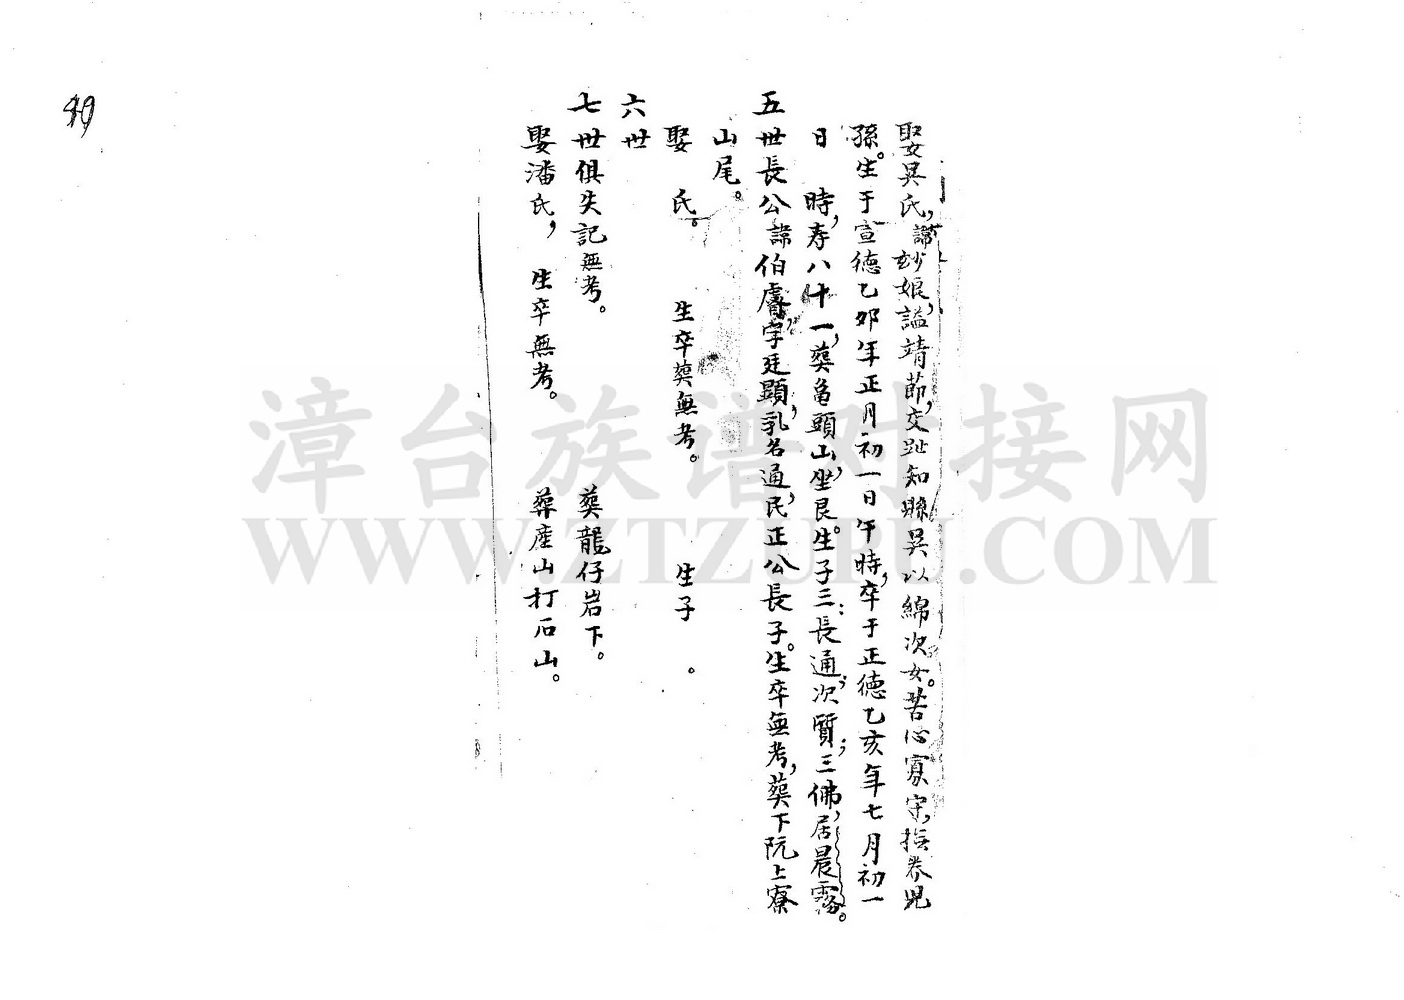 娶吳氏，諱妙娘，謚靖節，交趾知縣吳以綿次女。苦心寡守，撫养児
孫。生于宣德乙夘年正月初一日午時，卒于正德乙亥年七月初一
日　時，寿八十一，葬龟頭山，坐艮。生子三：長通；次質；三佛，居晨霧。
五世長公諱伯膚，字廷顯，乳名通，民正公長子。生卒無考，葬下阮上寮
山尾。
娶　氏。　生卒葬無考。　生子　。
六世
七世俱失記無考。　葬龍仔岩下。
娶潘氏，　生卒無考。　葬産山打石山。
49
漳台族谱对接网
WWW.ZTZUPU.COM